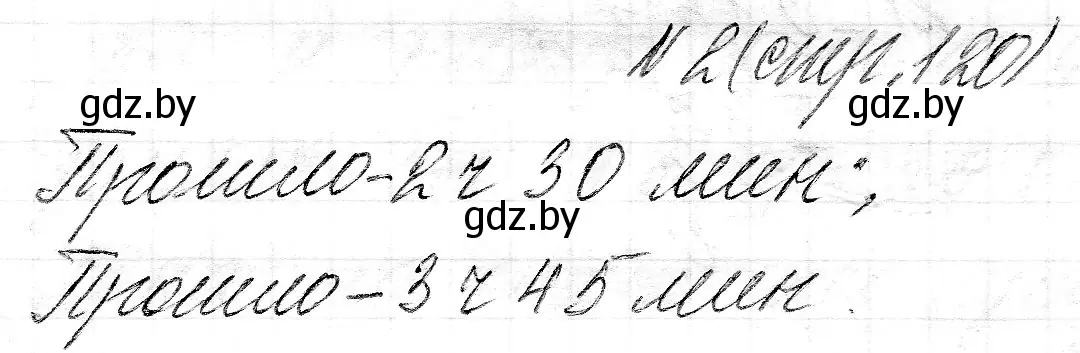 N 2 (стр. 120)
gdz.by gdz.by
Прошло - 2 ч 30 мин;
gdz.by
Прошло - 3 ч 45 мин.